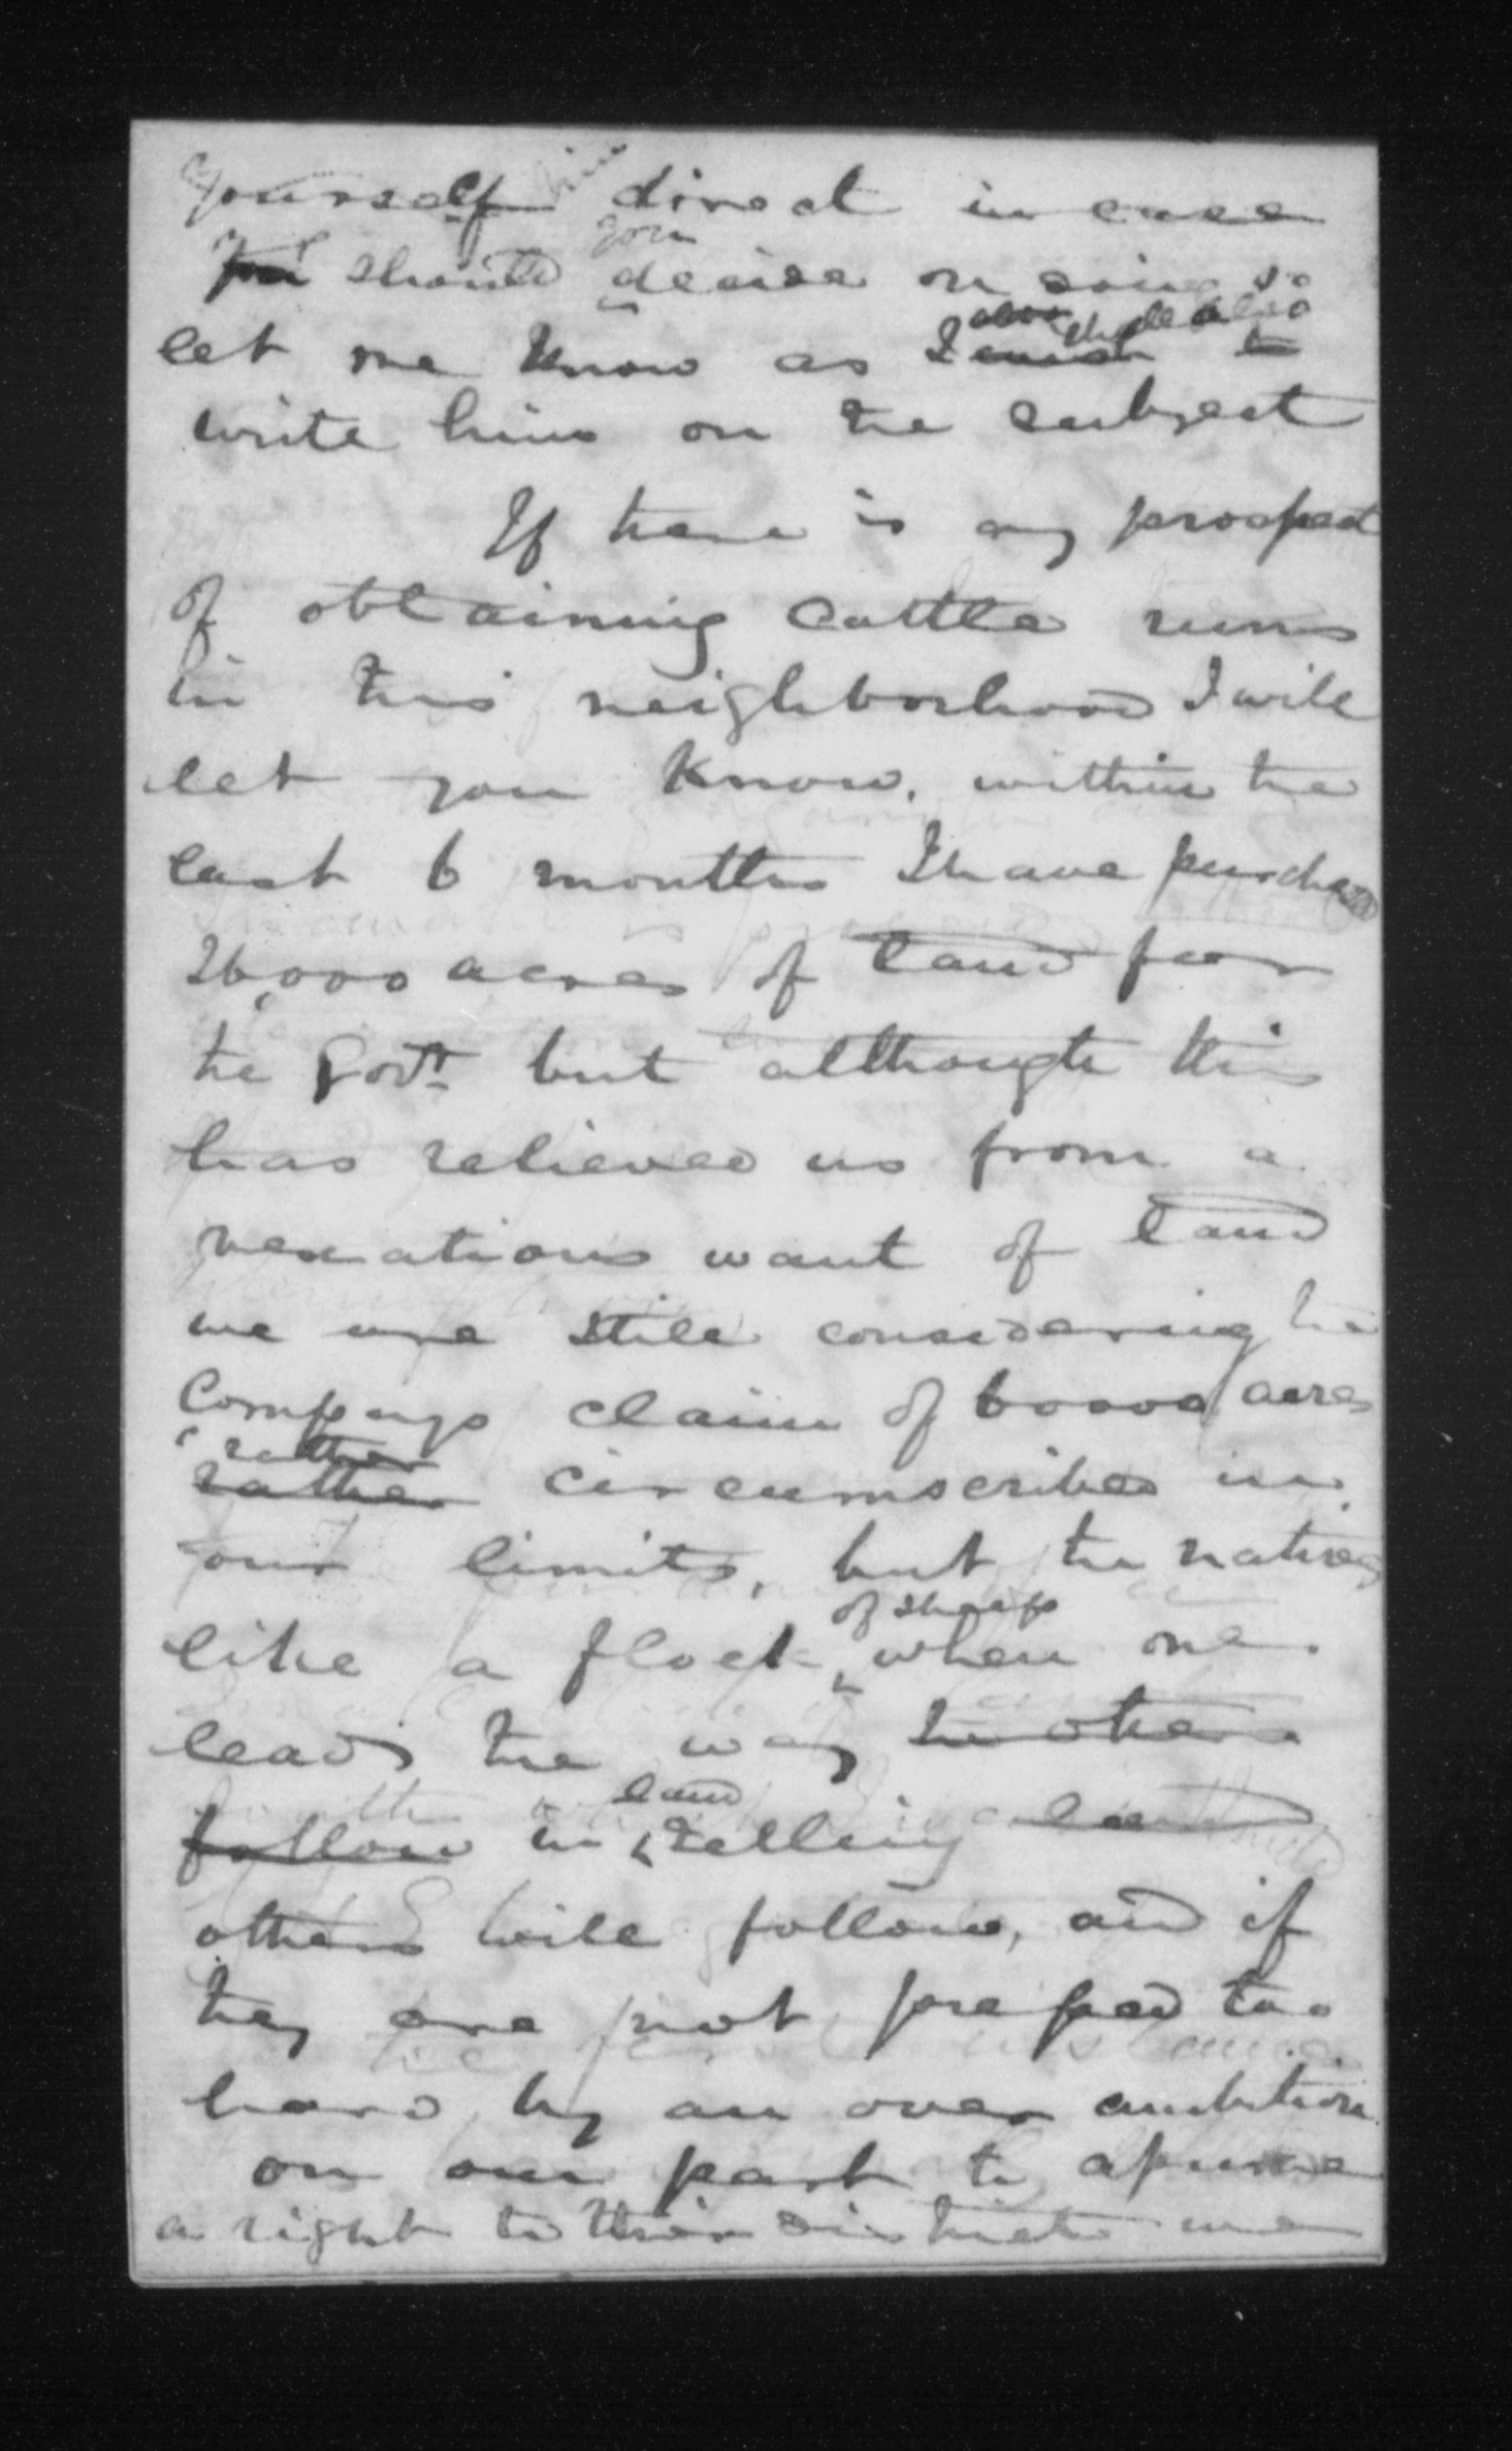 yourself him direct in case
you should you decide on doing so
let me know as I wish to also shall also
write him on the subject
If there is any prospect
of obtaining cattle runs
in this neighborhood I will
let you know. within the
last 6 months I have purchased
26,000 acres of land for
the Govt but although this
has relieved us from a
vexatious want of land
we are still considering the
Companys claim of 60000 acres
rather
rather circumscribed in
our limits, but the natives
like a flock of sheep when one
leads the way the others
follow in land selling land
others will follow, and if
they are not pressed too
hard by an over ambition
on our part to assume
a right to their districts we